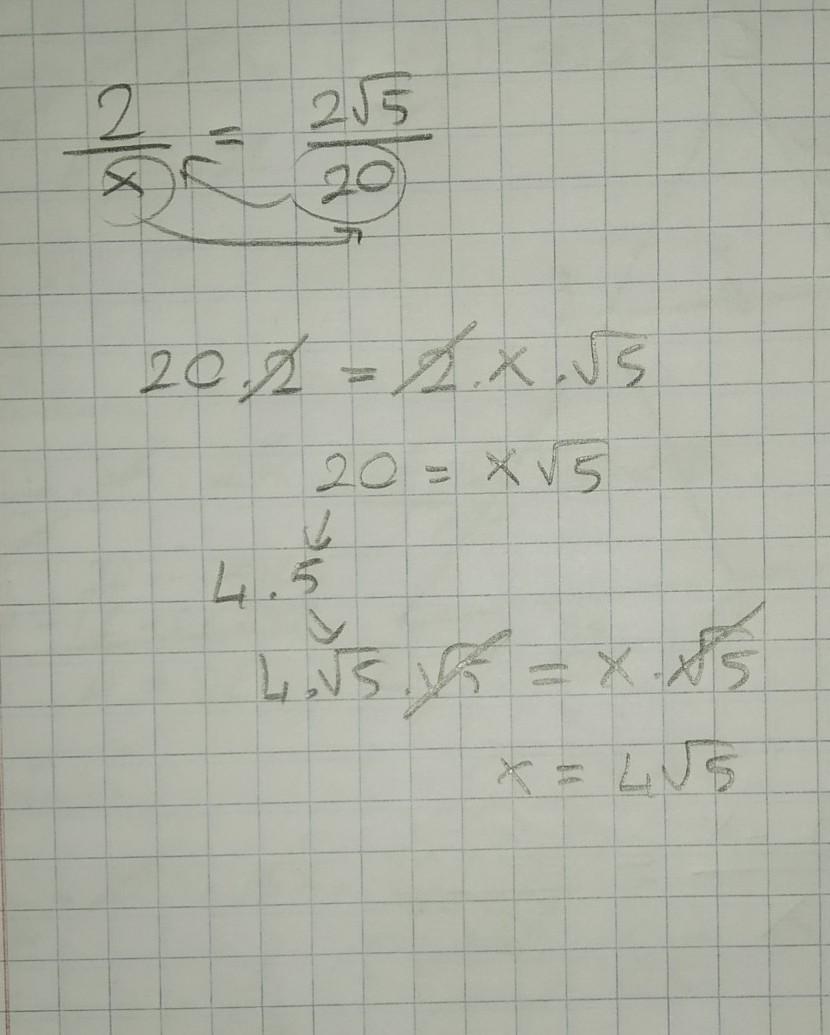 2/x = 2√5/20
20.2 = 2.x.√5
20 = x√5
4.5
4.√5.√5 = x.√5
x = 4√5